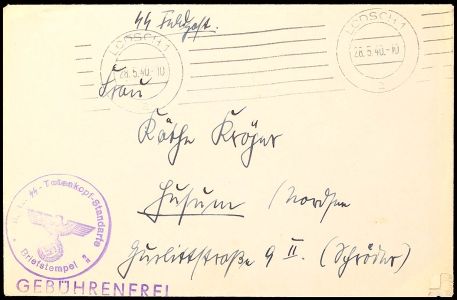 SS Feldpost.
28.5.40.-10
28.5.40.-10
Frau
Käthe Kröger
Husum (Nordsee
Gurlittstraße 9 II. (Schröder)
SS-Totenkopf-Standarte
Briefstempel
GEBÜHRENFREI